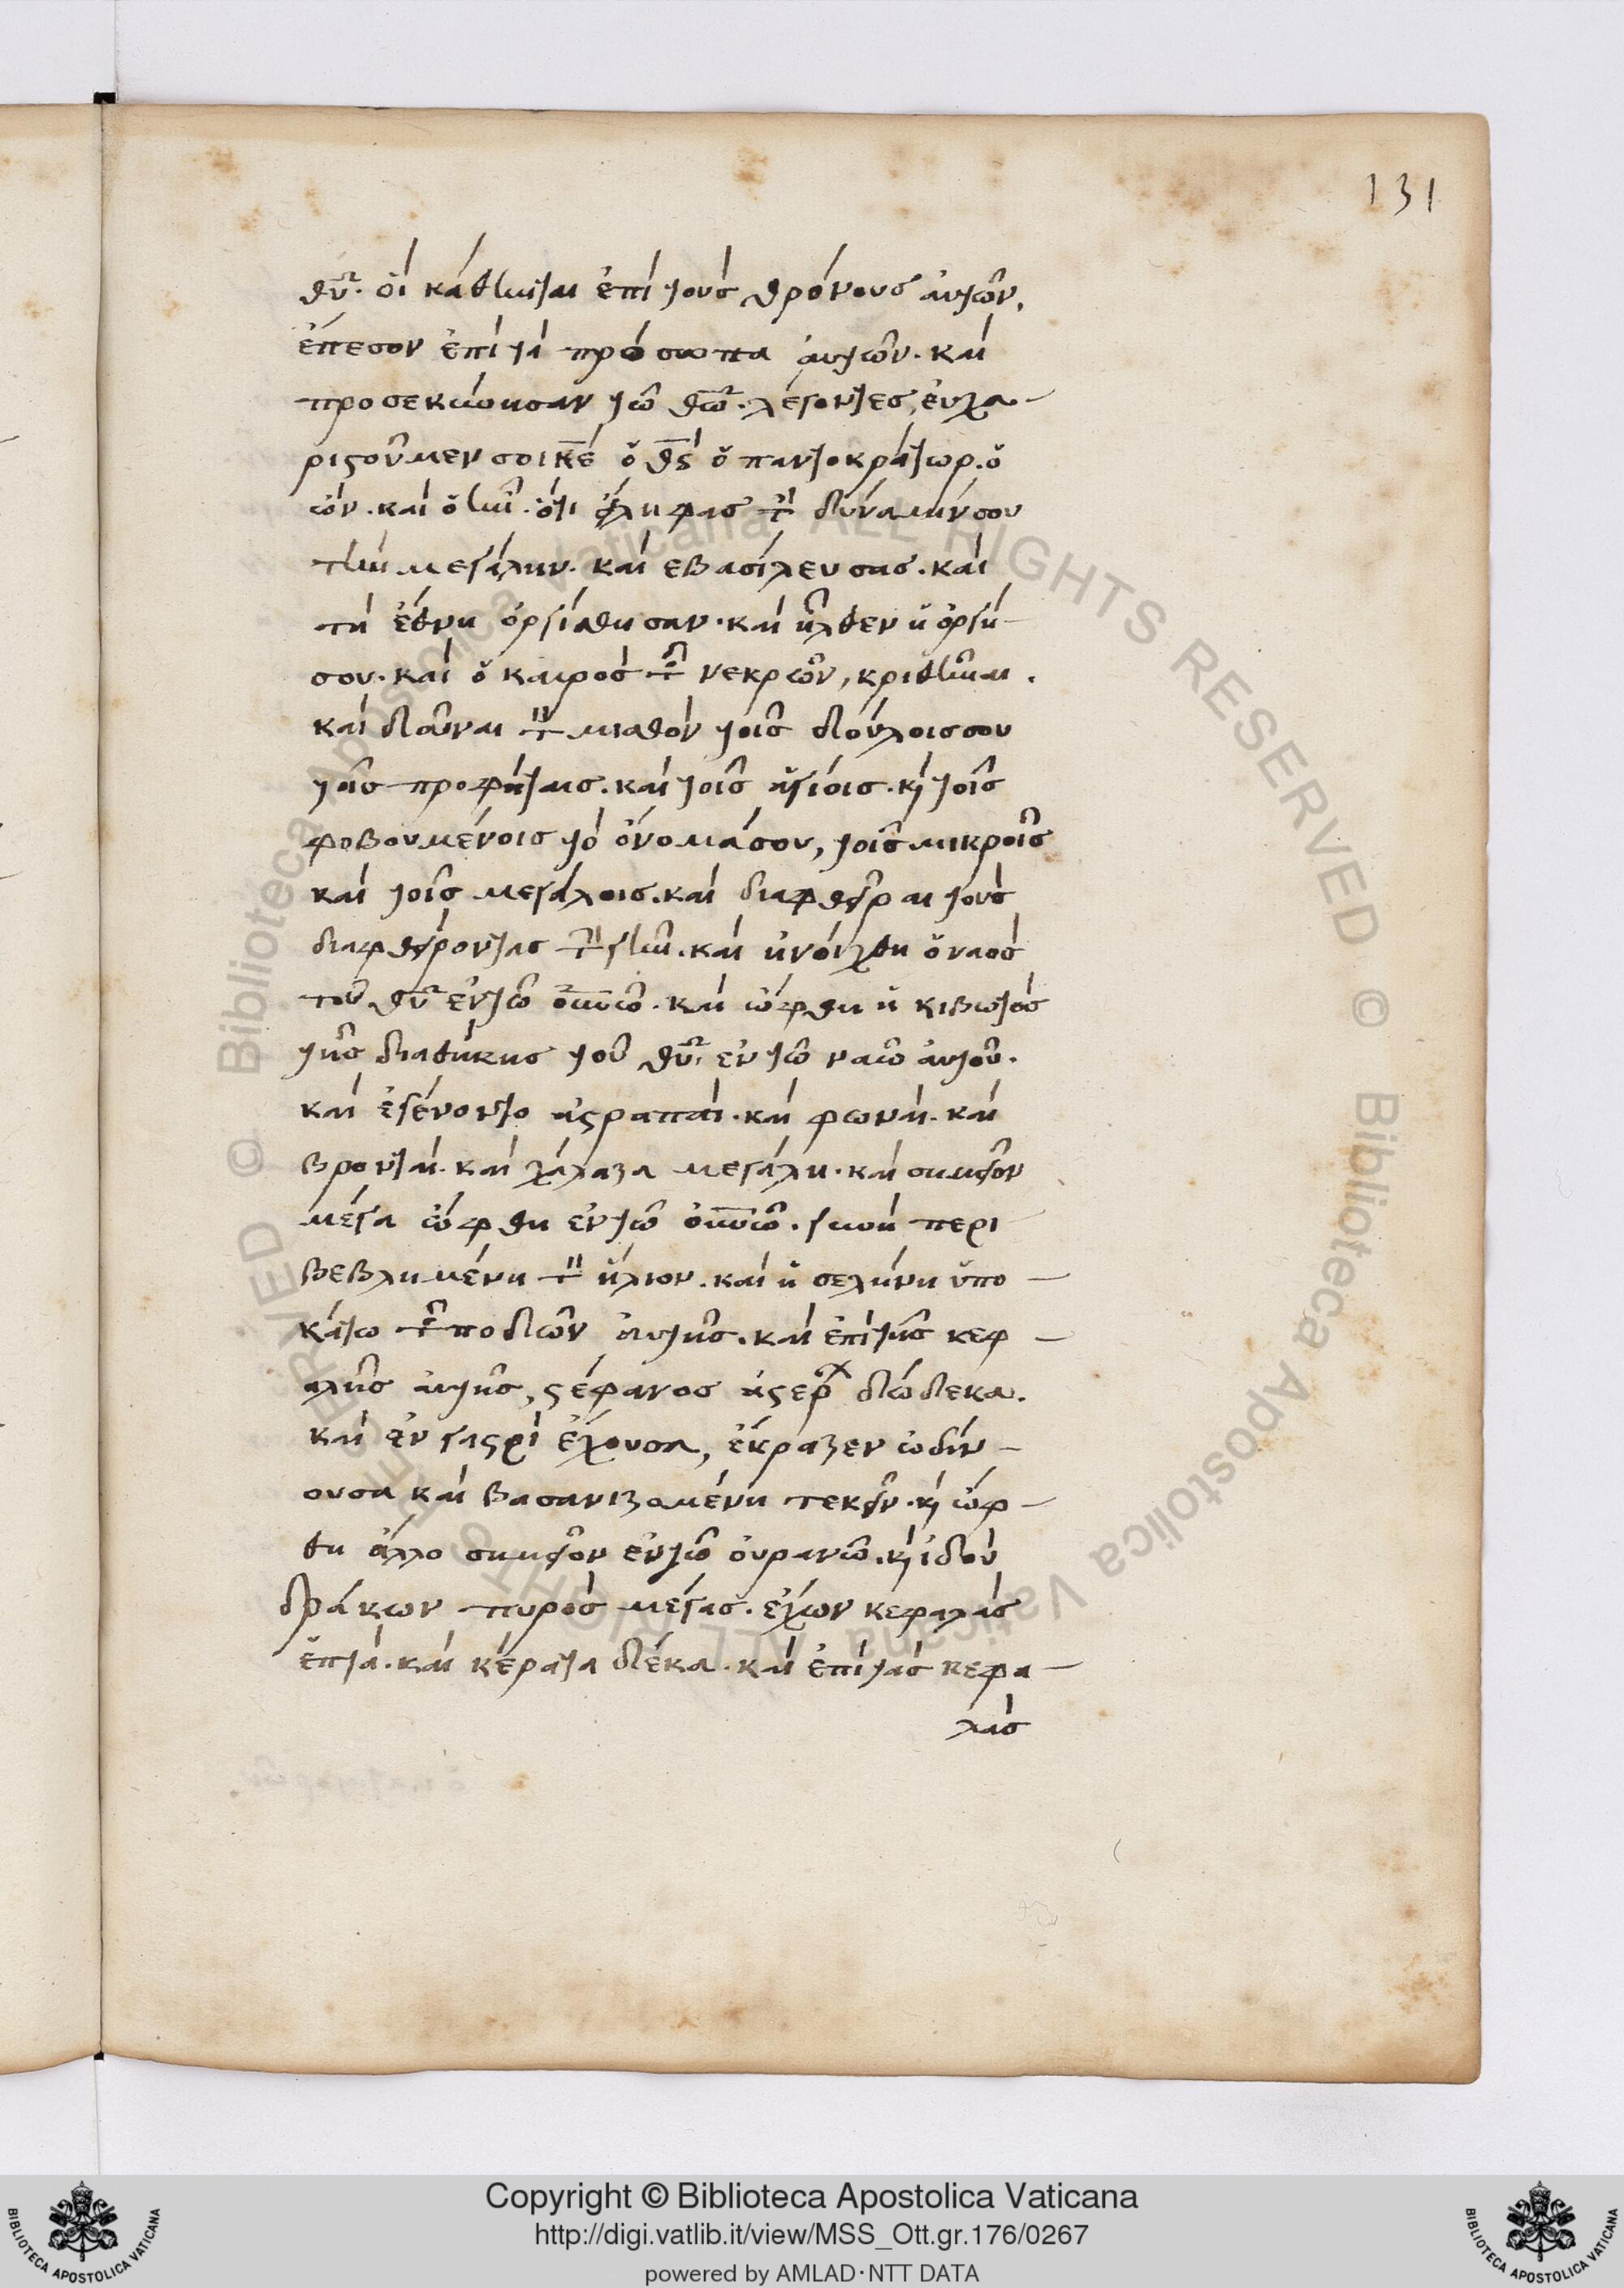 131
θῡ. οἳ κάθηνται ἐπὶ τοὺς θρόνους αὐτῶν,
ἔπεσον ἐπὶ τὰ πρόσωπα αὐτῶν. καὶ
προσεκύνησαν τῶ θω̄. λέγοντες, εὐχα-
ριστοῦμεν σοι κε̄ ὁ θς̄ ὁ παντοκράτωρ. ὁ
ὢν. καὶ ὁ ἦν. ὅτι εἴληφας τὴν δύναμίν σου
τὴν μεγάλην. καὶ εβασίλευσας. καὶ
τὰ ἔθνη ὀργίσθησαν. καὶ ἦλθεν ἡ ὀργή
σου. καὶ ὁ καιρὸς τῶν νεκρῶν, κριθῆναι.
καὶ δοῦναι τὸν μισθὸν τοῖς δούλοις σου
τοῖς προφήταις. καὶ τοῖς ἁγίοις. κὶ τοῖς
φοβουμένοις τὸ ὄνομά σου, τοῖς μικροῖς
καὶ τοῖς μεγάλοις. καὶ διαφθεῖραι τοὺς
διαφθείροντας τὴν γῆν. καὶ ἠνοίχθη ὁ ναὸς
τοῦ θῡ ἐν τῶ οὐνω̄. καὶ ὤφθη ἡ κιβωτὸς
τῆς διαθήκης τοῦ θῡ ἐν τῶ ναῶ αὐτοῦ.
καὶ ἐγένοντο ἀστραπαὶ. καὶ φωναὶ. καὶ
βρονταὶ. καὶ χάλαζα μεγάλη. καὶ σημεῖον
μέγα ὤφθη ἐν τῶ οὐνω̄. γυνὴ περι
βεβλημένη τὸν ἥλιον. καὶ ἡ σελήνη ὑπο-
κάτω τῶν ποδῶν αὐτῆς. καὶ ἐπὶ τῆς κεφ-
αλῆς αὐτῆς, στέφανος ἀστέρων δώδεκα.
καὶ ἐν γαστρὶ ἔχουσα, ἔκραζεν ὠδίν-
ουσα καὶ βασανιζομένη τεκεῖν. κὶ ὤφ-
θη ἄλλο σημεῖον ἐν τῶ οὐρανῶ. κὶ ἰδοὺ
δράκων πυρὸς μέγας. ἔχων κεφαλὰς
ἑπτὰ. καὶ κέρατα δέκα. καὶ ἐπὶ τὰς κεφα-
λὰς
Copyright © Biblioteca Apostolica Vaticana
http://digi.vatlib.it/view/MSS_Ott.gr.176/0267
powered by AMLAD·NTT DATA
BIBLIOTECA APOSTOLICA VATICANA
BIBLIOTECA APOSTOLICA VATICANA
© Biblioteca Apostolica Vaticana ALL RIGHTS RESERVED © Biblioteca Apostolica Vaticana ALL RIGHTS RESERVED